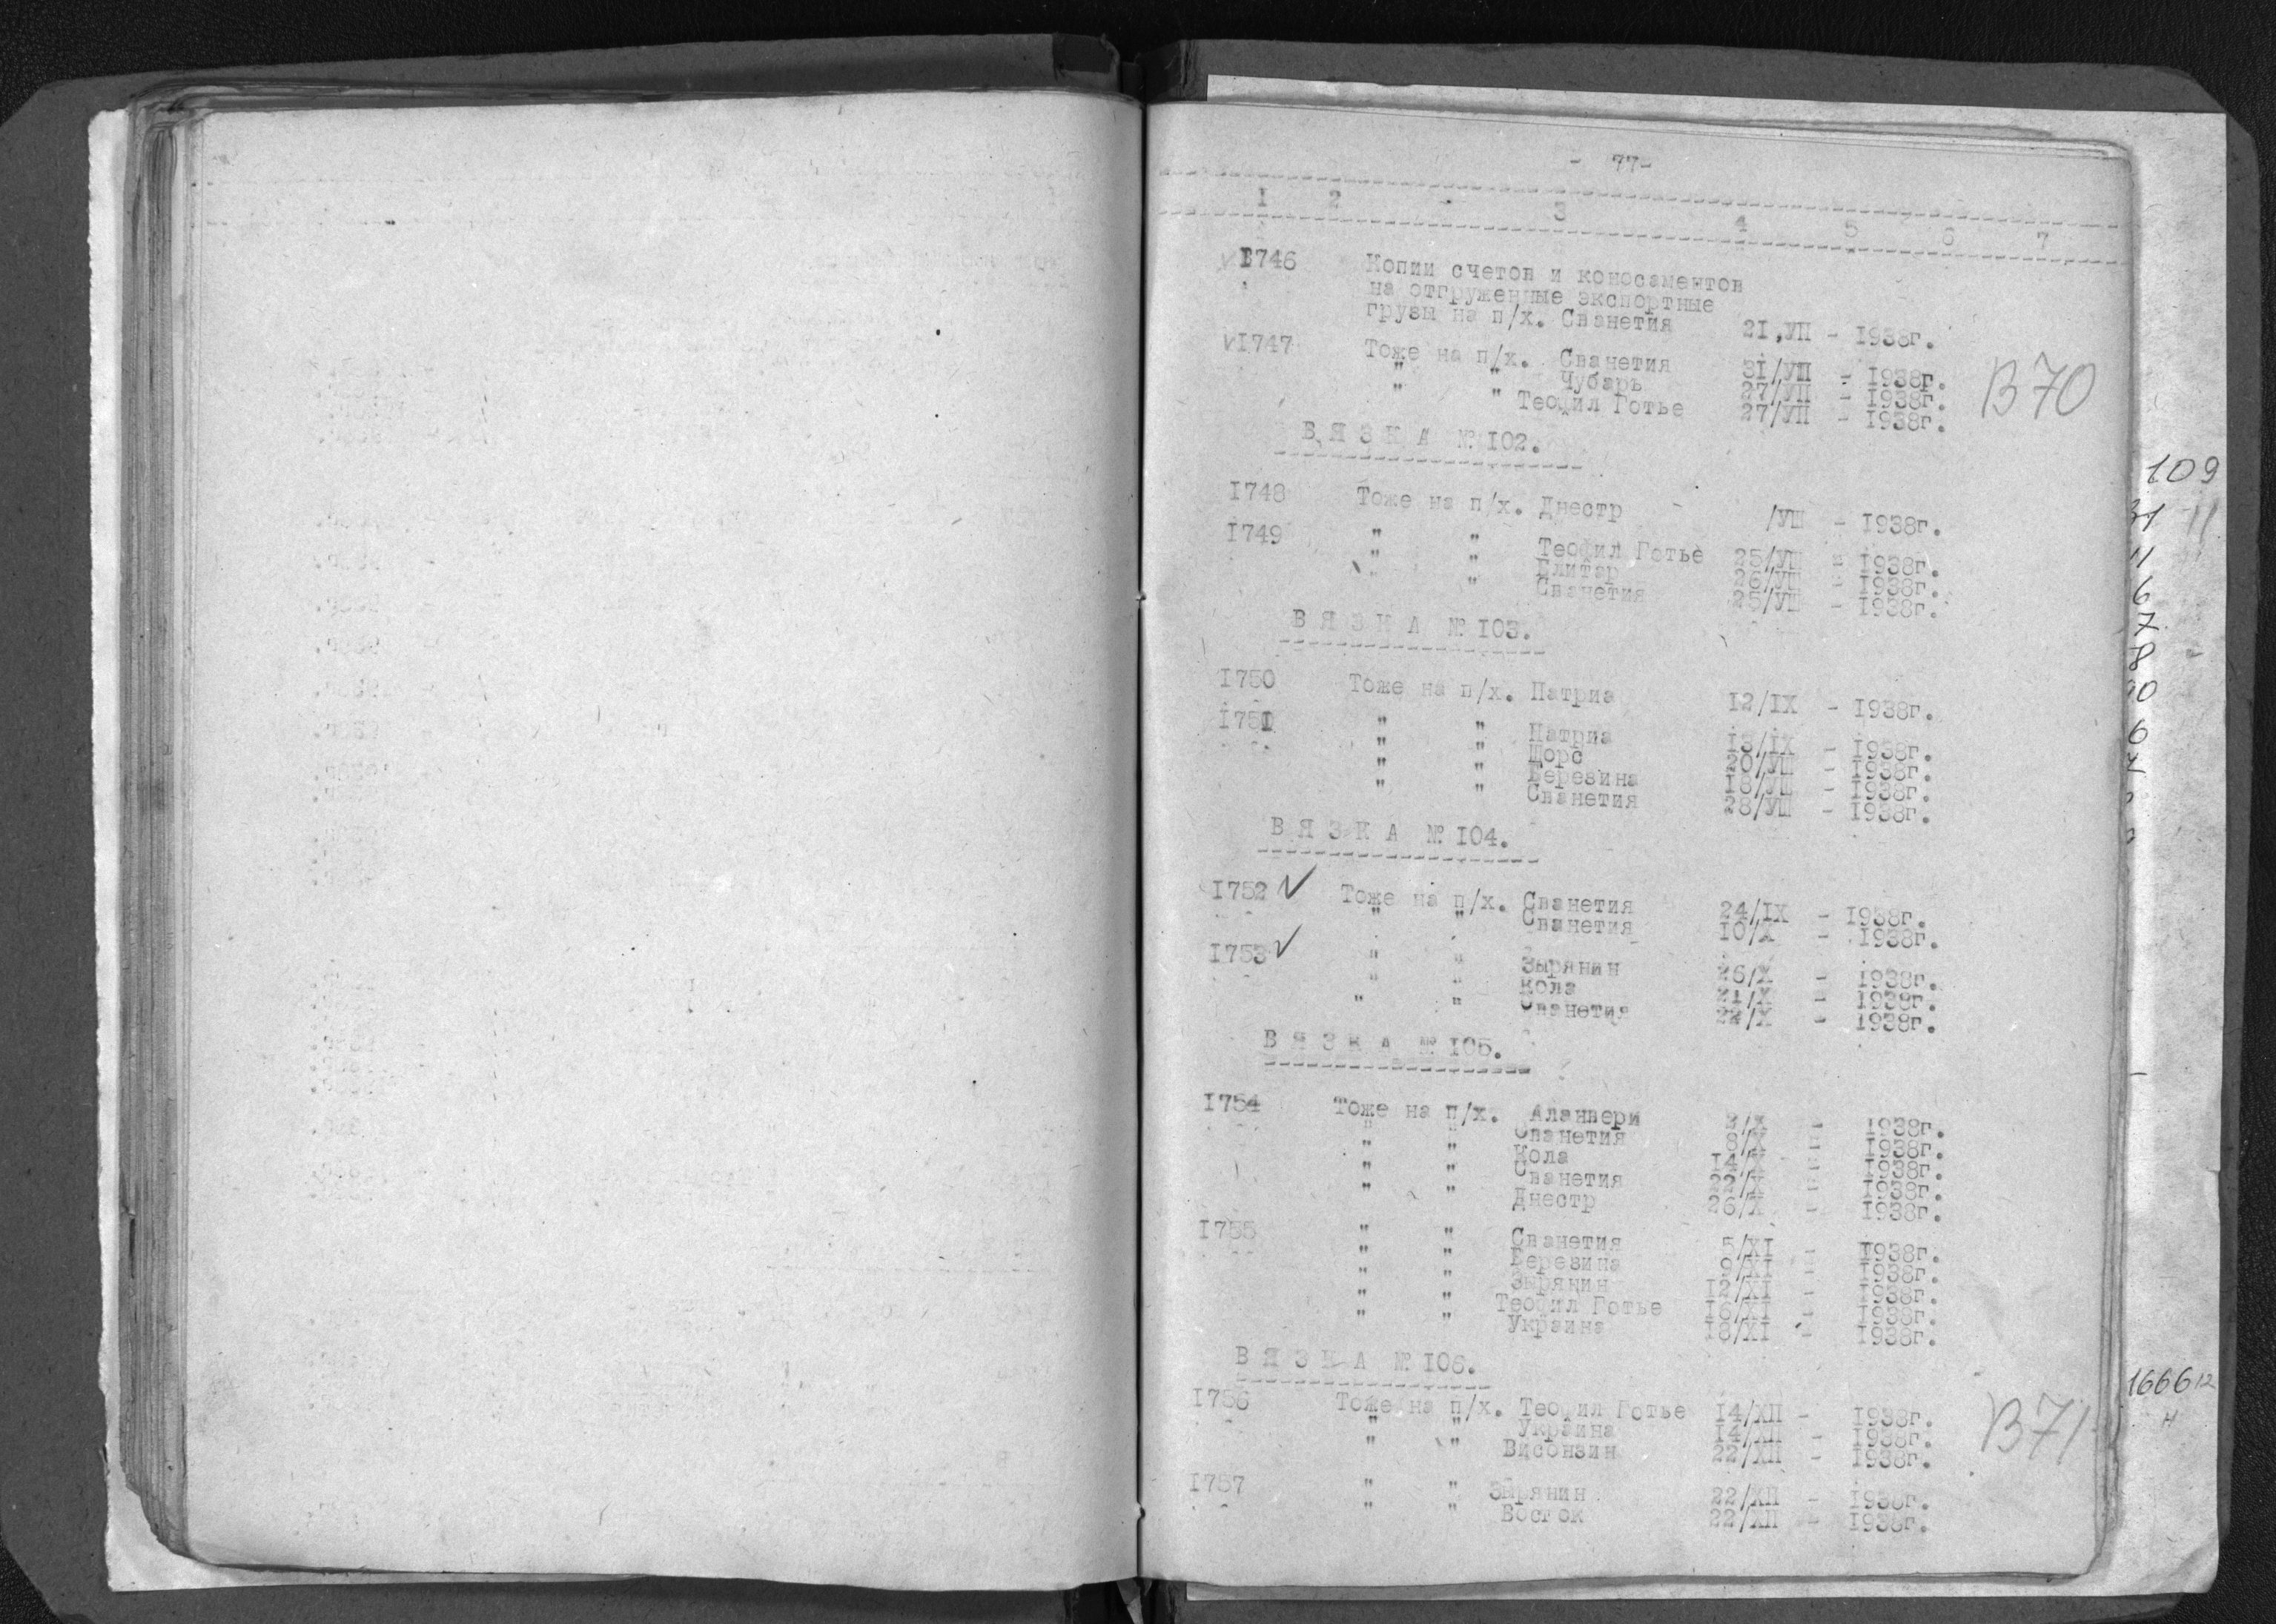 - 77-
1 2 3 4 5 6 7
1746 Копии счетов и коносаментов
на отгруженные экспортные
грузы на п/х. Сванетия 21,УП - 1938г.
V1747 Тоже на п/х. Сванетия 31/УП - 1938г.
" " Чубарь 27/УП - 1938г.
" " Теофил Готье 27/УП - 1938г.
В70
В Я З К А № 102.
1748 Тоже на п/х. Днестр /УШ - 1938г.
1749 " " Теофил Готье 25/УШ - 1938г.
" " 26/УШ - 1938г.
" " Сванетия 25/УШ - 1938г.
В Я З К А № 103.
1750 Тоже на п/х. Патриа 12/IX - 1938г.
1751 " " Патриа 13/IX - 1938г.
" " Щорс 20/УШ - 1938г.
" " Березина 18/УШ - 1938г.
" " Сванетия 28/УШ - 1938г.
В Я З К А № 104.
1752 V Тоже на п/х. Сванетия 24/IX - 1938г.
" " Сванетия 10/X - 1938г.
1753 V " " Зырянин 26/X - 1938г.
" " Кола 21/X - 1938г.
" " Сванетия 22/X - 1938г.
В Я З К А № 105.
1754 Тоже на п/х. Алавери 3/X - 1938г.
" " Сванетия 8/X - 1938г.
" " Кола 14/X - 1938г.
" " Сванетия 22/X - 1938г.
" " Днестр 26/X - 1938г.
1755 " " Сванетия 5/XI - 1938г.
" " Березина 9/XI - 1938г.
" " Зырянин 12/XI - 1938г.
" " Теофил Готье 16/XI - 1938г.
" " Украина 18/XI - 1938г.
В Я З К А № 106.
1756 Тоже на п/х. Теофил Готье 14/ХП - 1938г.
" " Украина 14/ХП - 1938г.
" " Висонзин 22/ХП - 1938г.
В71
1757 " " Зырянин 22/ХП - 1938г.
" " Восток 22/ХП - 1938г.
109
1666